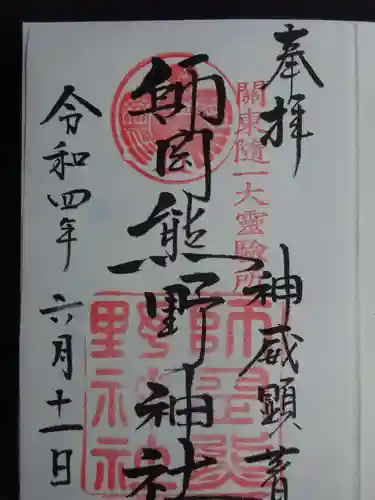 奉拝
關東隨一大靈驗所
神威顕著
師岡熊野神社
令和四年 六月十一日